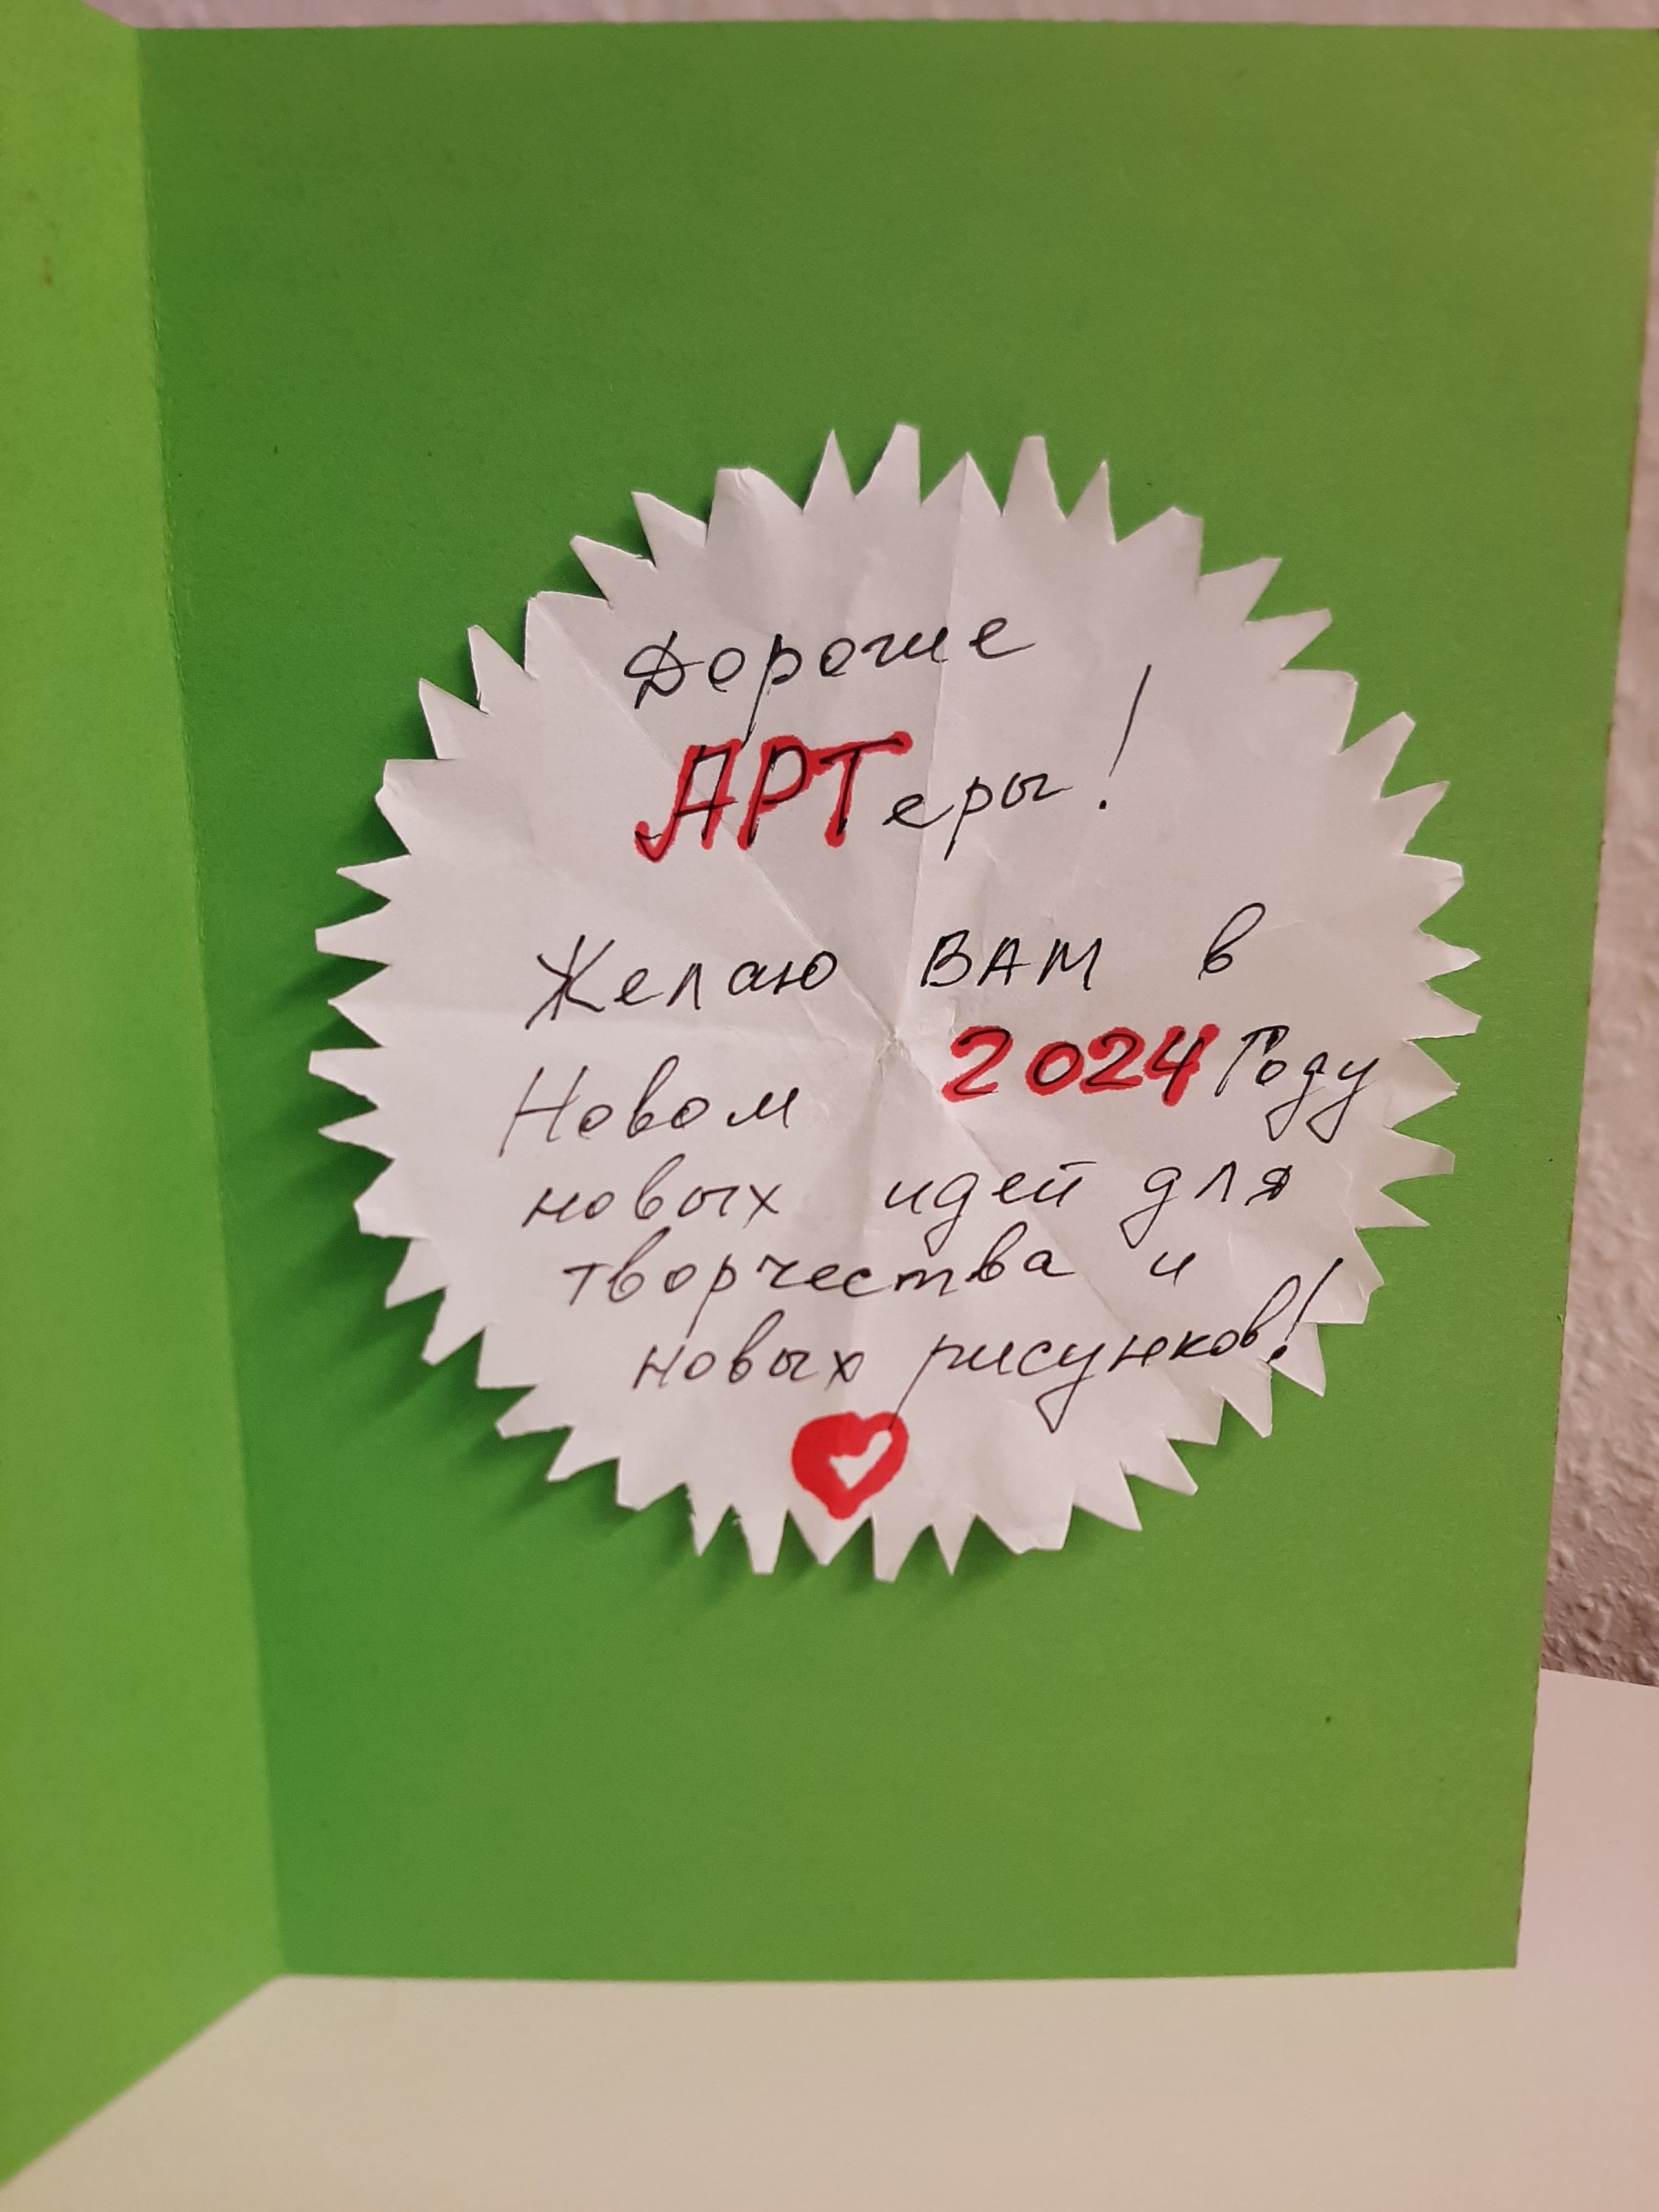 Дорогие
АРТеры!
Желаю ВАМ в
Новом 2024 Году
новых идей для
творчества и
новых рисунков!